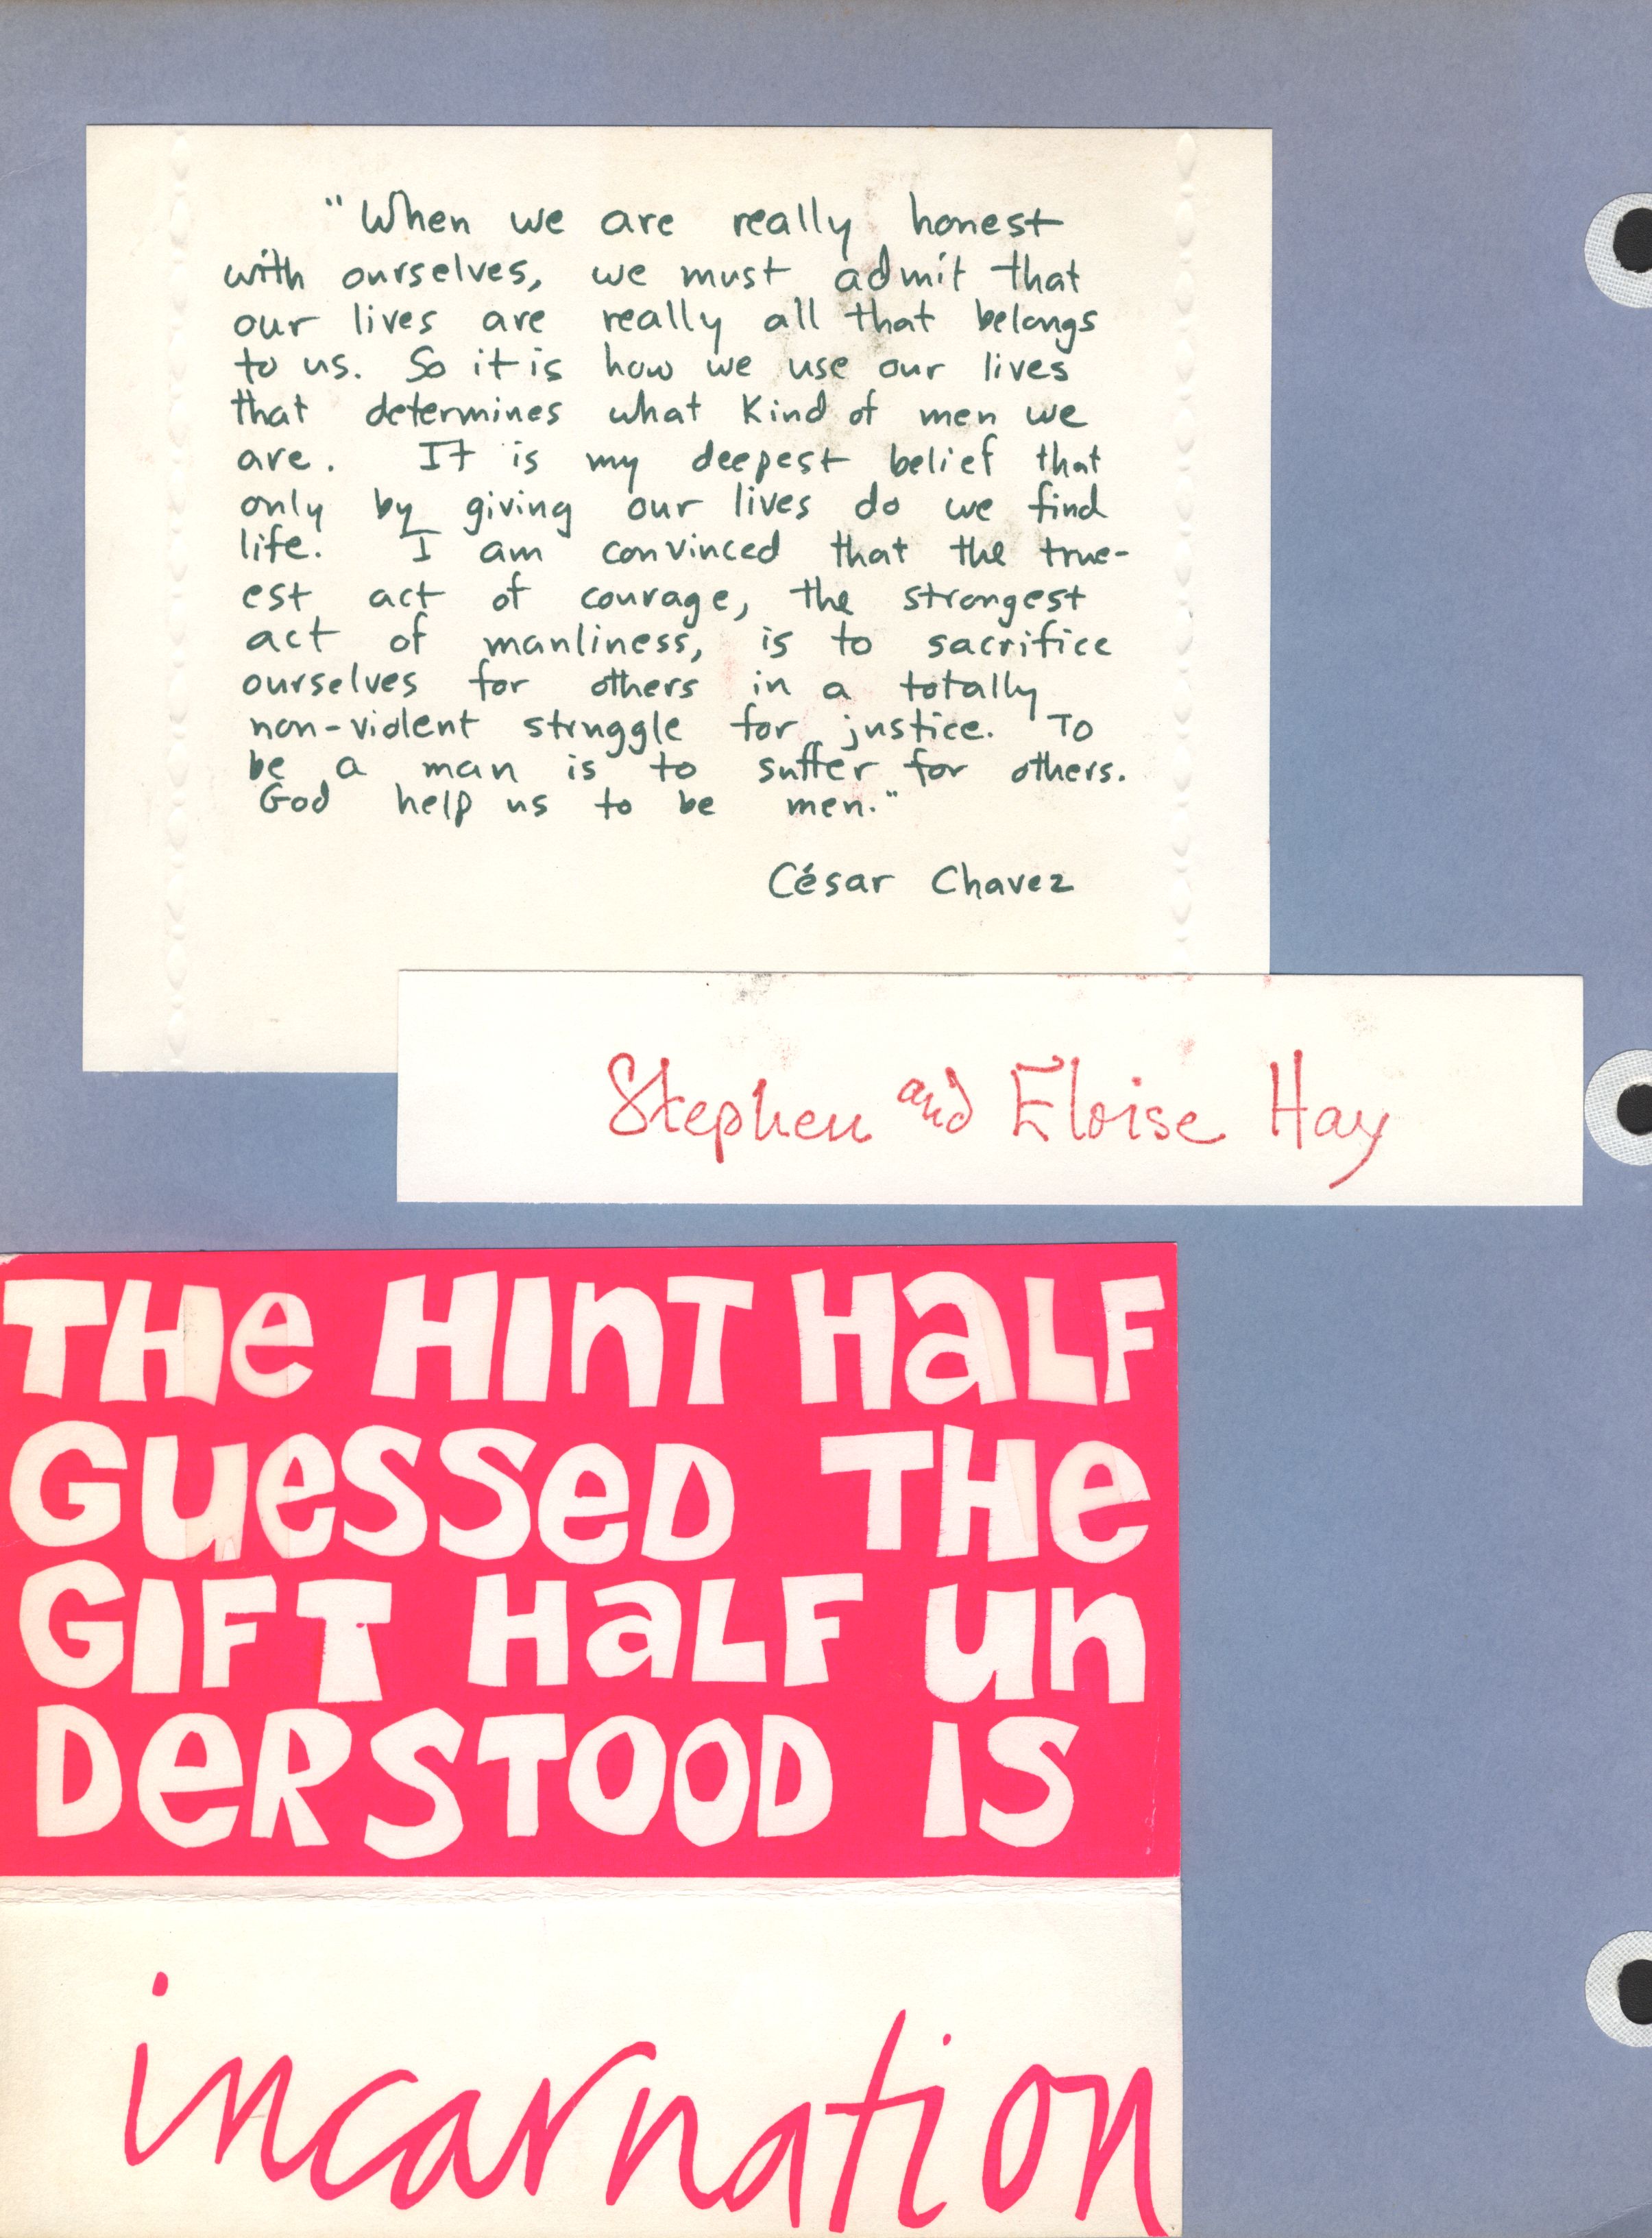 "When we are really honest
with ourselves, we must admit that
our lives are really all that belongs
to us. So it is how we use our lives
that determines what kind of men we
are. It is my deepest belief that
only by giving our lives do we find
life. I am convinced that the true-
est act of courage, the strongest
act of manliness, is to sacrifice
ourselves for others in a totally
non-violent struggle for justice. To
be a man is to suffer for others.
God help us to be men."
César Chavez
Stephen and Eloise Hay
THe HInT HaLF
GuesseD THe
GIFT HaLF un
DeRSTOOD IS
incarnation